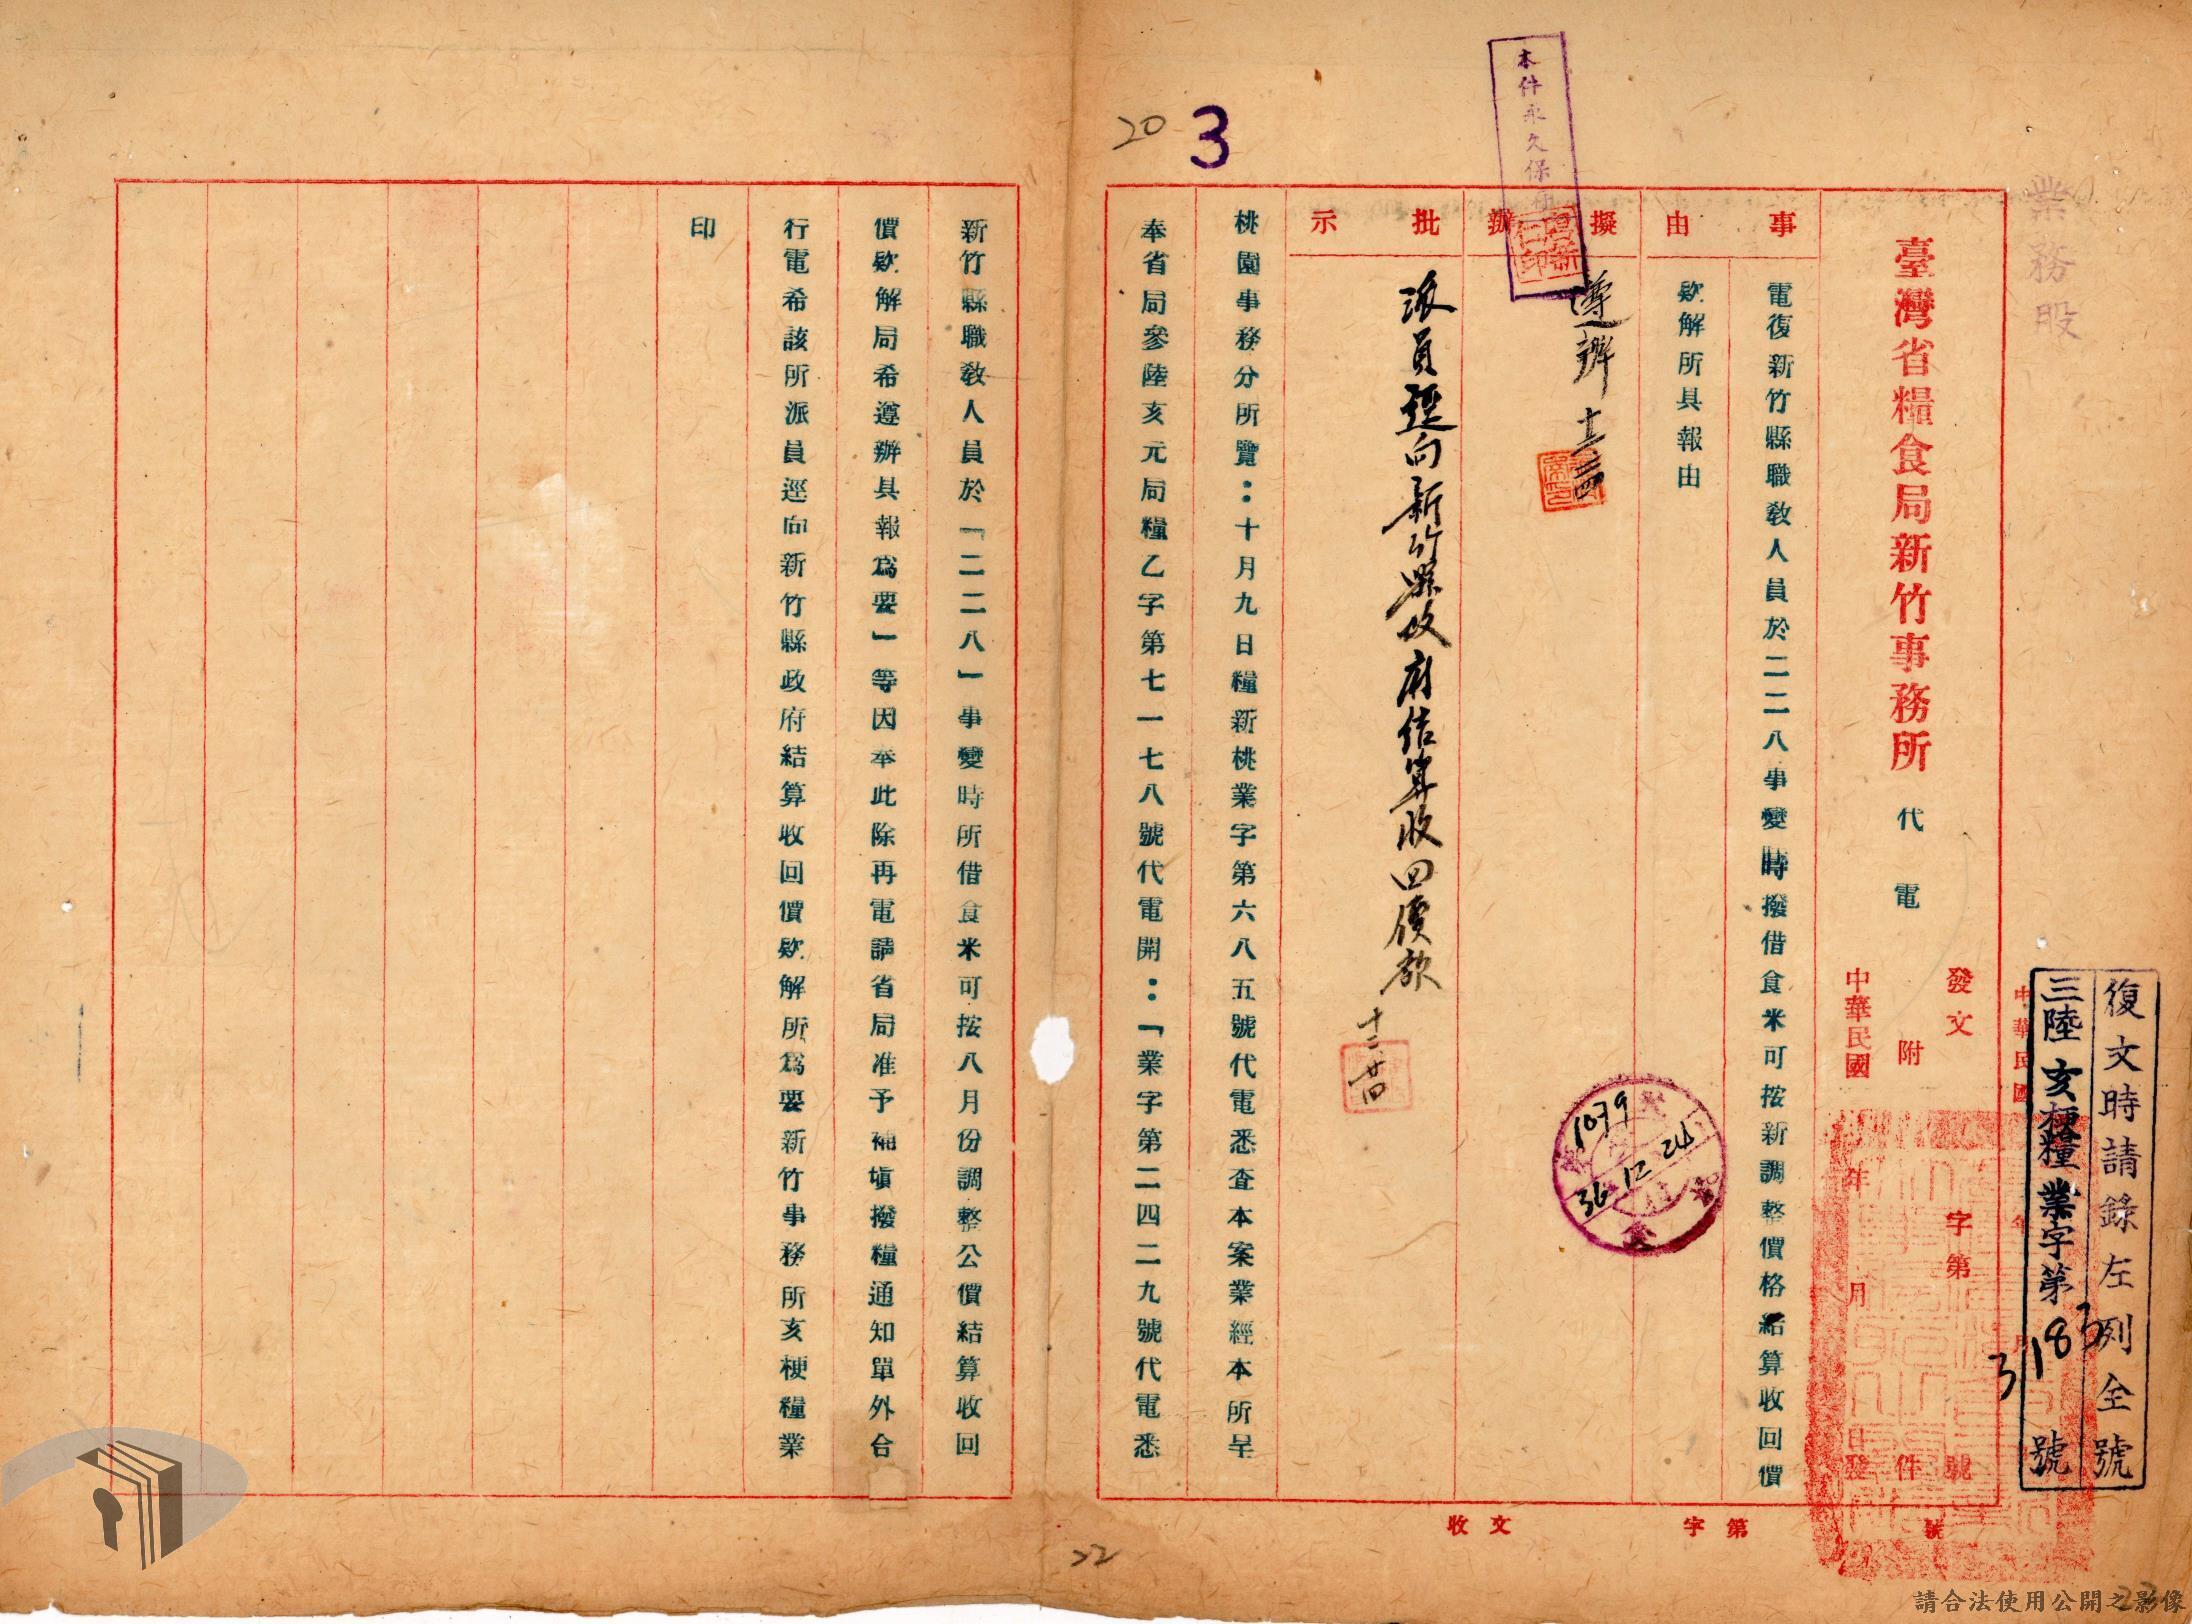 業務股
復文時請錄左列全號
三陸亥梗糧業字第3183號
臺灣省糧食局新竹事務所 代電
發文 字第 號
附 件
中華民國 年 月 日發
事由
電復新竹縣職敎人員於二二八事變時撥借食米可按新調整價格結算收回價
欵解所具報由
擬辦
遵辦
批示
派員逕向新竹縣政府結算收回價款 十二、廿四
本件永久保存
1079
36 12 24
3
20
桃園事務分所覽：十月九日糧新桃業字第六八五號代電悉查本案業經本所呈
奉省局參陸亥元局糧乙字第七一七八號代電開：「業字第二四二九號代電悉
新竹縣職敎人員於「二二八」事變時所借食米可按八月份調整公價結算收回
價欵解局希遵辦具報爲要」等因奉此除再電請省局准予補塡撥糧通知單外合
行電希該所派員逕向新竹縣政府結算收回價欵解所爲要新竹事務所亥梗糧業
印
收文 字第 號
22
請合法使用公開之影像